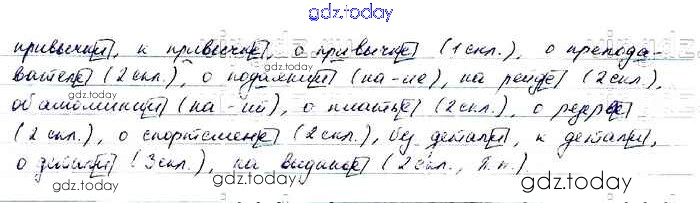 gdz.today
привычки, к привычке, о привычке (1 скл.), о препода-
вателе (2 скл.), о (на -ие), на рейде (2 скл.),
об алюминии (на -ий), о платье (2 скл.), о
(2 скл.), о спортсмене (2 скл.), без детали, к детали,
о детали (3 скл.), на (2 скл., П.п.).
gdz.today
gdz.today
gdz.today
gdz.today
gdz.today